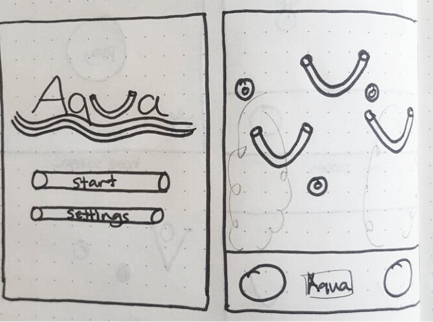 Aqua
Start
Settings
Aqua